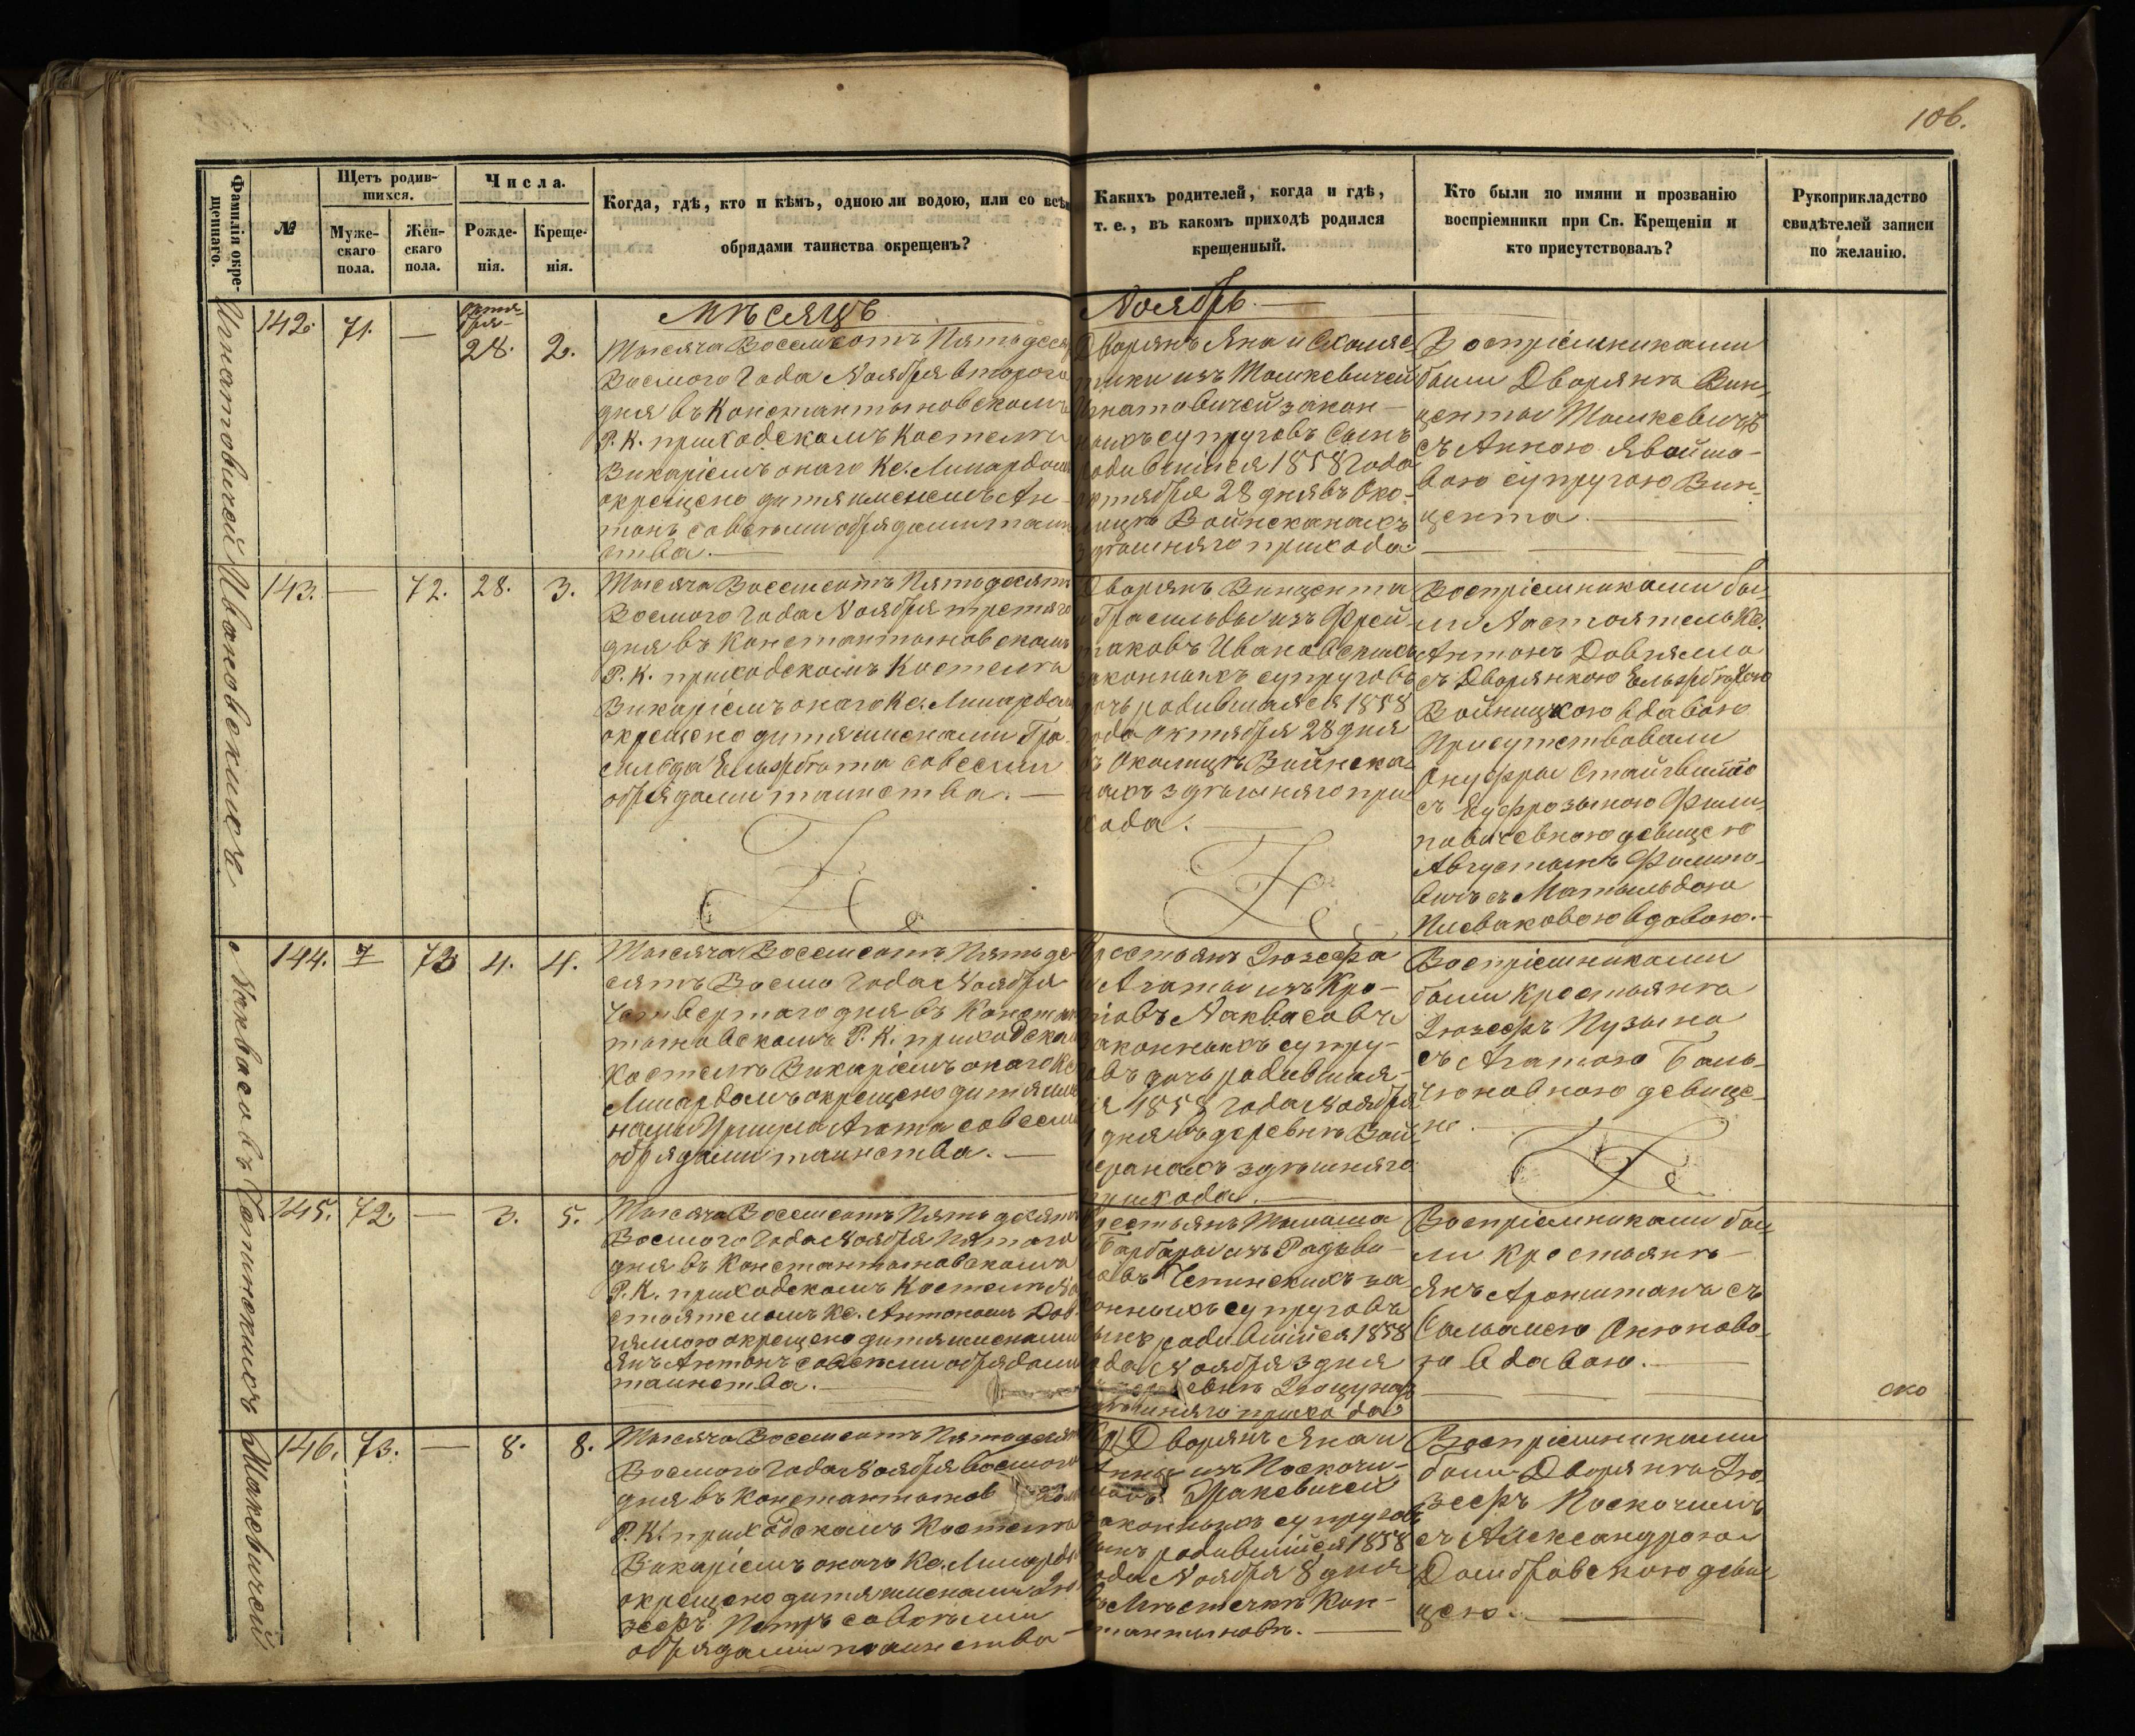 106.
Фамилія окре-
щеннаго.
№
Щетъ родив-
шихся.
Муже-
скаго
пола.
Жен-
скаго
пола.
Числа.
Рожде-
нія.
Креще-
нія.
Когда, гдѣ, кто и кѣмъ, одною ли водою, или со всѣ
обрядами таинства окрещенъ?
Какихъ родителей, когда и гдѣ,
т. е., въ какомъ приходѣ родился
крещенный.
Кто были по имяни и прозванію
воспріемники при Св. Крещеніи и
кто присутствовалъ?
Рукоприкладство
свидѣтелей записи
по желанію.
Мѣсяцъ
Ноябрь.
Игнатовичей
142.
71.
—
Октя-
бря
28.
2.
Тысяча Восемсотъ Пятьдеся
Восмого Года Ноября второго
дня въ Константыновскомъ
Р. К. приходскомъ Костелѣ
Викаріемъ онаго Кс. Линардомъ
окрещено дитя именемъ Ан-
тонъ совсѣми обрядами таин
ства.
Дворянъ Яна и Схоляс
тики изъ Машкевичей
Игнатовичей закон-
ныхъ супруговъ Сынъ
родившійся 1858 Года
октября 28 дня въ Око-
лицѣ Войнсканахъ
здѣшняго прихода.
Воспріемниками
были Дворяне Вин-
центы Машкевичъ
съ Анною Явойша-
вою супругою Вин-
цента.
Ивановскихъ
143.
—
72.
28.
3.
Тысяча Восемсотъ Пятьдесятъ
Восмого Года Ноября третяго
дня въ Константыновскомъ
Р. К. приходскомъ Костелѣ
Викаріемъ онаго Кс. Линардомъ
окрещено дитя именами Гра-
сильда Ельзрбѣта совсеми
обрядами таинства.
Дворянъ Винцента
и Грасильды изъ Фрей-
таковъ Ивановскихъ
законныхъ супруговъ
дочь родившаяся 1858
года Октября 28 дня
въ Околицѣ Войнска-
нахъ здѣшняго при
хода.
Воспріемниками бы-
ли Настоятель Кс.
Антонъ Довгялло
съ Дворянкою Ельзрбѣтою
Войницкою вдавою
Присутствовали
Онуфры Стайгвилло
съ Еуфрозыною Фили-
повичевною девицею
Августынъ Филипо-
вичъ съ Матыльдою
Плеваковою вдавою.
Наквасовъ
144.
7
73
4.
4.
Тысяча Восемсотъ Пятьде
сятъ Восмо Года Ноября
Четвертаго дня въ Констан
тыновскомъ Р. К. приходском
Костелѣ Викаріемъ онаго Кс
Линардомъ окрещено дитя име
нами Агата совсеми
обрядами таинства.
Крестьянъ Іозефа
и Агаты изъ Кро-
товъ Наквасовъ
законныхъ супру-
говъ дочь родившая-
ся 1858 года Ноября
4 дня въ деревнѣ Вой-
серанахъ здѣшняго
прихода.
Воспріемниками
были Крестьяне
Іозефъ Пузына
съ Агатою Баль-
чюновною девице-
ю.
Чепинскихъ
145.
72.
—
3.
5.
Тысяча Восемсотъ Пятьдесятъ
Восмого Года Ноября Пятаго
дня въ Константыновскомъ
Р. К. приходскомъ Костелѣ На
стоятелемъ Кс. Антономъ Дов
гялломъ окрещено дитя именами
Янъ Антонъ совсѣми обрядами
таинства.
Крестьянъ Томаша
и Барбары изъ Радзви-
ловъ Чепинскихъ за
конныхъ супруговъ
сынъ родившійся 1858
года Ноября 3 дня
здѣшняго прихода
Воспріемниками бы-
ли Крестьяне
Янъ Аронштанъ съ
Сальмею Анюново-
ю вдавою.
ско
146.
73.
—
8.
8.
Тысяча Восемсотъ Пятьдесятъ
Восмого Года Ноября восмого
дня въ Константынов
Р. К. приходскомъ Костелѣ
Викаріемъ онаго Кс. Линардо
окрещено дитя именами Іо
зефъ Петръ совсѣми
обрядами таинства
Дворянъ Яна и
Анны изъ Поскочи-
законныхъ супруговъ
сынъ родившійся 1858
года Ноября 8 дня
въ Мѣстечкѣ Кон-
стантыновѣ.
Воспріемниками
были Дворяне Іо
зефъ Поскочимъ
съ Александрою
Домбровскою деви
цею.